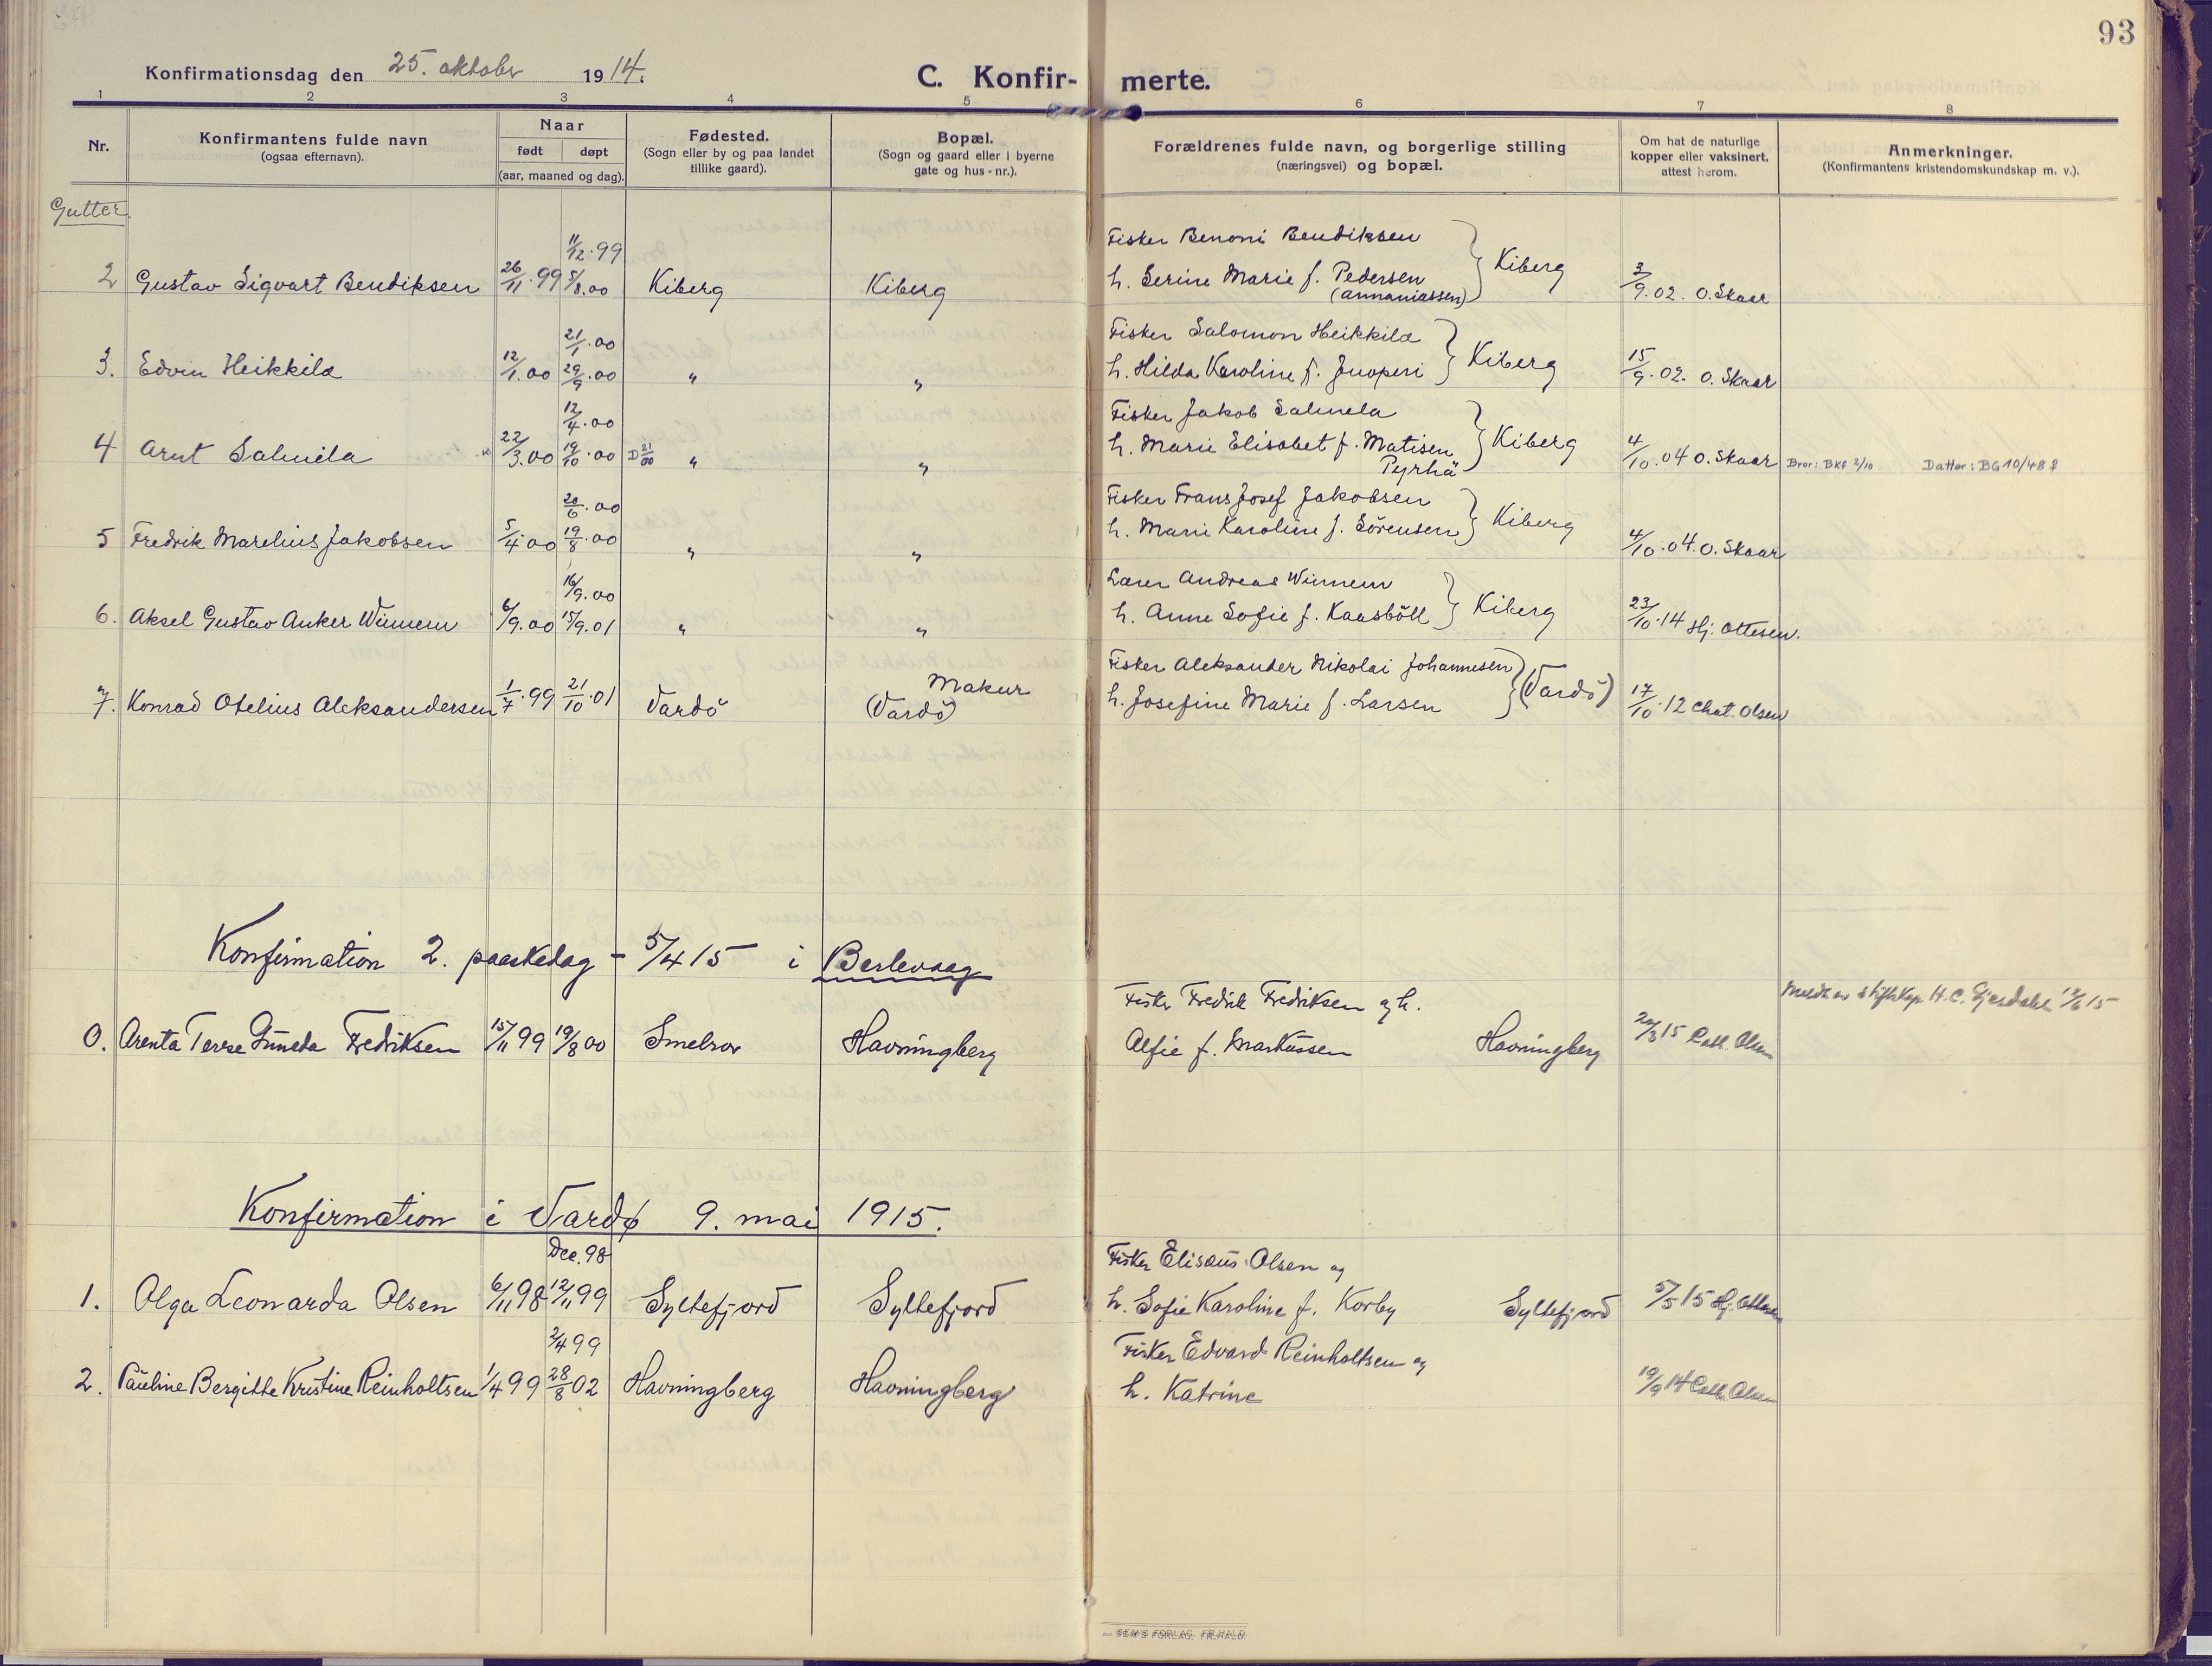 93
Konfirmationsdag den 25. oktober 1914.
C. Konfir- merte.
1 2 3 4 5 6 7 8
Nr.
Konfirmantens fulde navn
(ogsaa efternavn).
Naar
født døpt
(aar, maaned og dag).
Fødested.
(Sogn eller by og paa landet
tillike gaard).
Bopæl.
(Sogn og gaard eller i byerne
gate og hus-nr.).
Forældrenes fulde navn, og borgerlige stilling
(næringsvei) og bopæl.
Om hat de naturlige
kopper eller vaksinert,
attest herom.
Anmerkninger.
(Konfirmantens kristendomskundskap m. v.).
Gutter.
11/12.99 Fisker Benoni Bendiksen
2 Gustav Sigvart Bendiksen 26/11.99 5/8.00 Kiberg Kiberg h. Serine Marie f. Pedersen Kiberg 3/9.02. O. Skaar
(Annaniassen)
21/1.00 Fisker Salomon Heikkilä
3. Edvin Heikkilä 12/1.00 29/9.00 " " h. Hilda Karoline f. Juoperi Kiberg 15/9.02. O. Skaar
12/4.00 Fisker Jakob Salmela
4 Arnt Salmela 22/3.00 19/10.00 " " h. Marie Elisabet f. Matisen Kiberg 4/10.04 O. Skaar Bror: BKf 2/10 Datter: BG 10/48 8
Pyrhä
20/6.00 Fisker Frans Josef Jakobsen
5 Fredrik Marelius Jakobsen 5/4.00 19/8.00 " " h. Marie Karoline f. Sörensen Kiberg 4/10.04. O. Skaar
16/9.00 Lærer Andreas Winnem
6. Aksel Gustav Anker Winnem 6/9.00 15/9.01 " " h. Anne Sofie f. Kaasböll Kiberg 23/10.14 Hj. Ottesen.
Makur Fisker Aleksander Nikolai Johannesen
7. Konrad Otelius Aleksandersen 1/7.99 21/10.01 Vardö (Vardö) h. Josefine Marie f. Larsen (Vardö) 17/10.12 Chat. Olsen
Konfirmation 2. paaskedag - 5/4 15 i Berlevaag
Fisker Fredrik Fredriksen og h. H. C. Gjesdahl 15
0. Arenta Terese Guneda Fredriksen 15/11 99 19/8 00 Smelror Havningberg Alfie f. Markussen Havningberg 20/3 15 Cath. Olsen
Konfirmation i Vardø 9. mai 1915.
Dec. 98 Fisker Elisæus Olsen og
1. Olga Leonarda Olsen 6/11 98 12/11 99 Syltefjord Syltefjord h. Sofie Karoline f. Korby Syltefjord 5/5 15 Hj. Ottesen
2/4 99 Fisker Edvard Reinholtsen og
2. Pauline Bergitte Kristine Reinholtsen 1/4 99 28/8 02 Havningberg Havningberg h. Katrine 19/9 14 Cath. Olsen
SEM'S FORLAG. FR.HALD.